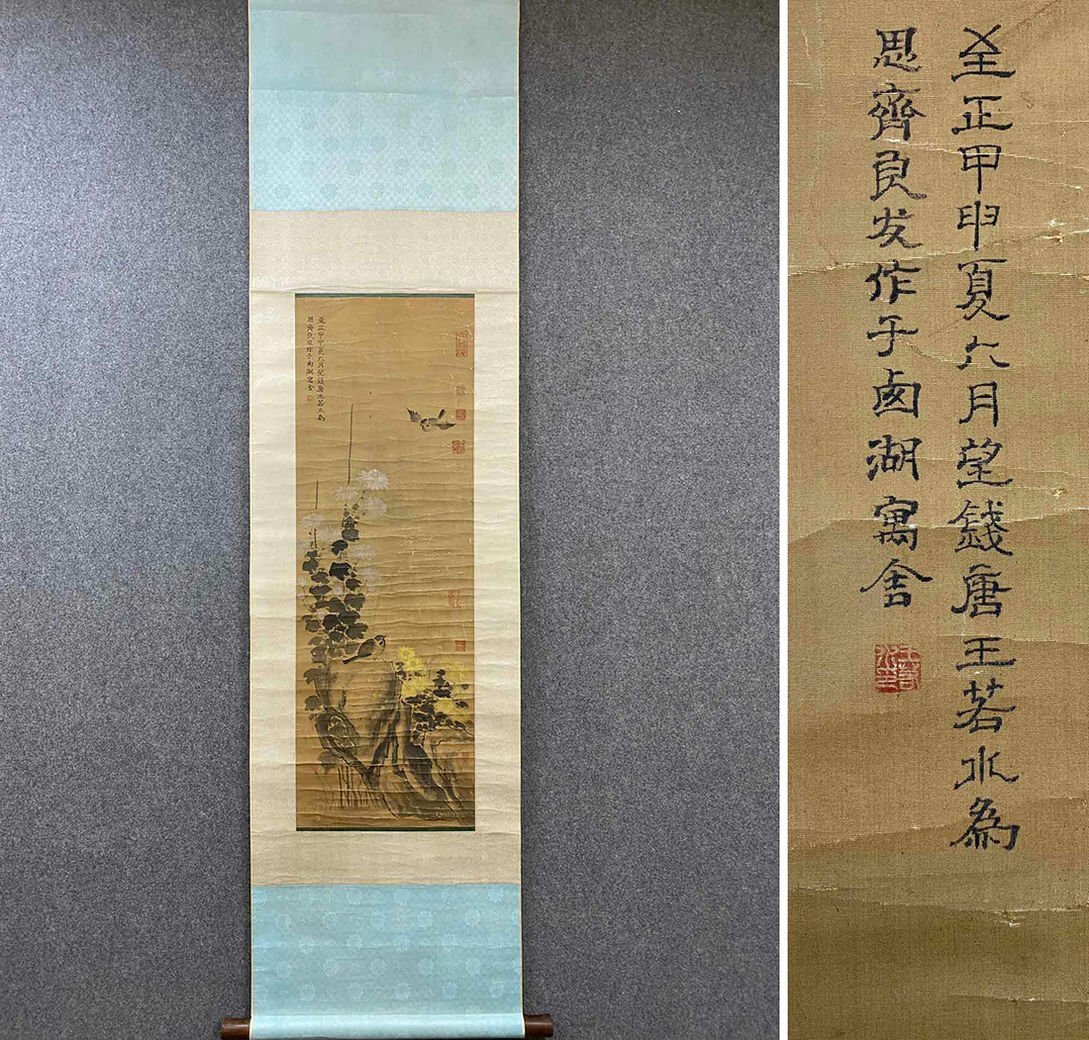 至正甲申夏六月望錢唐王若水為
思齊良发作于西湖寓舍